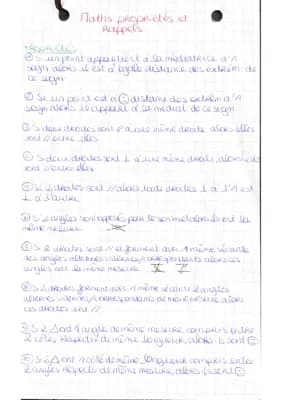 Maths propriétés et
Rappels
Propriétés
① Si un point appartient à la médiatrice d'1
segm alors il est à égale distance des extrém. de
ce segm
② Si un point est à = distance des extrém d'1
segm alors il appart à la médiat de ce segm
③ Si deux droites sont // à une même droite alors elles
sont // entre elles
④ Si deux droites sont ⊥ à une même droite, alors elles
sont // entre elles
⑤ Si 2 droites sont // alors toute droites ⊥ à l'1 est
⊥ à l'autre
⑥ Si 2 angles sont opposés par le sommet alors ils ont la
même mesure
⑦ Si 2 droites sont // et forment avec 1 même sécante
des angles alternes internes/correspondants alors ces
angles ont la même mesure
⑧ Si 2 droites forment avec 1 même sécante 2 angles
alternes internes/correspondants de même mesure alors
ces droites sont //
⑨ Si 2 △ ont 1 angle de même mesure compris entre
2 côtés respectiv de même longueur, alors ils sont =
⑩ Si 2 △ ont 1 côté de même longueur compris entre
2 angles respectiv de même mesure, alors ils sont =